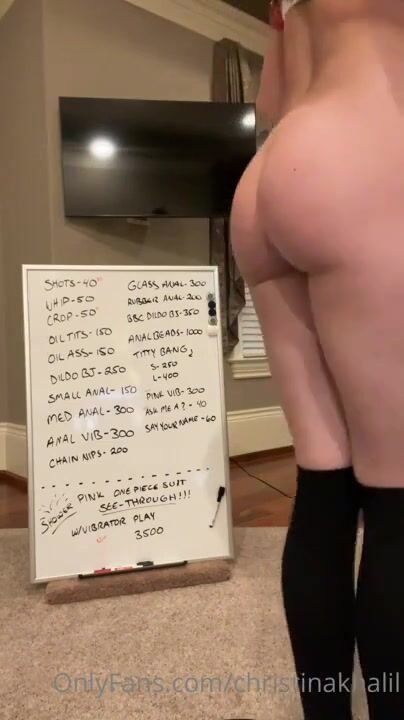 SHOTS-40
WHIP-50
CROP-50
OIL TITS-150
OIL ASS-150
DILDO BJ-250
SMALL ANAL-150
MED ANAL-300
ANAL VIB-300
CHAIN NIPS-200
GLASS ANAL-300
RUBBER ANAL-200
BBC DILDO BJ-350
ANAL BEADS-1000
TITTY BANG
S-250
L-400
PINK VIB-300
ASK ME A?-40
SAY YOUR NAME-60
SHOWER
PINK ONE PIECE SUIT
SEE-THROUGH!!!
W/VIBRATOR PLAY
3500
OnlyFans.com/christinakhalil